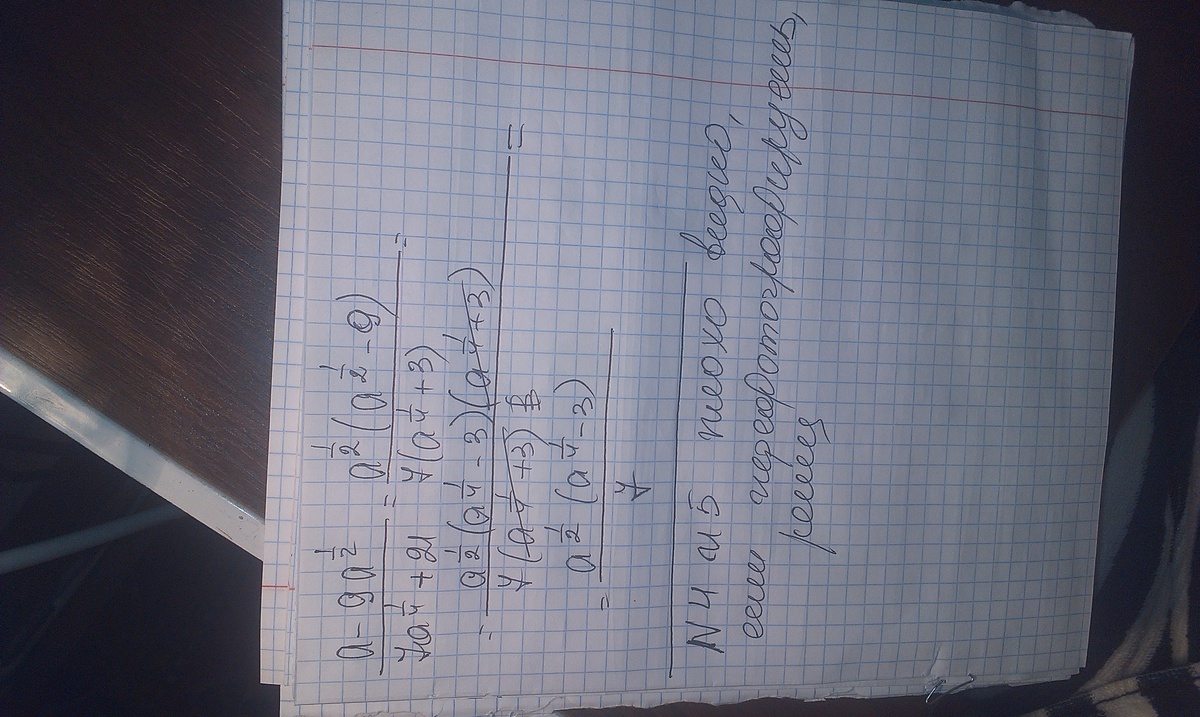 (a - 9a^(1/2)) / (7a^(1/4) + 21) = (a^(1/2) (a^(1/2) - 9)) / (7(a^(1/4) + 3)) =
= (a^(1/2) (a^(1/4) - 3)(a^(1/4) + 3)) / (7(a^(1/4) + 3)) =
= (a^(1/2) (a^(1/4) - 3)) / 7
N4 и 5 плохо видно,
если перефотографируешь,
решея